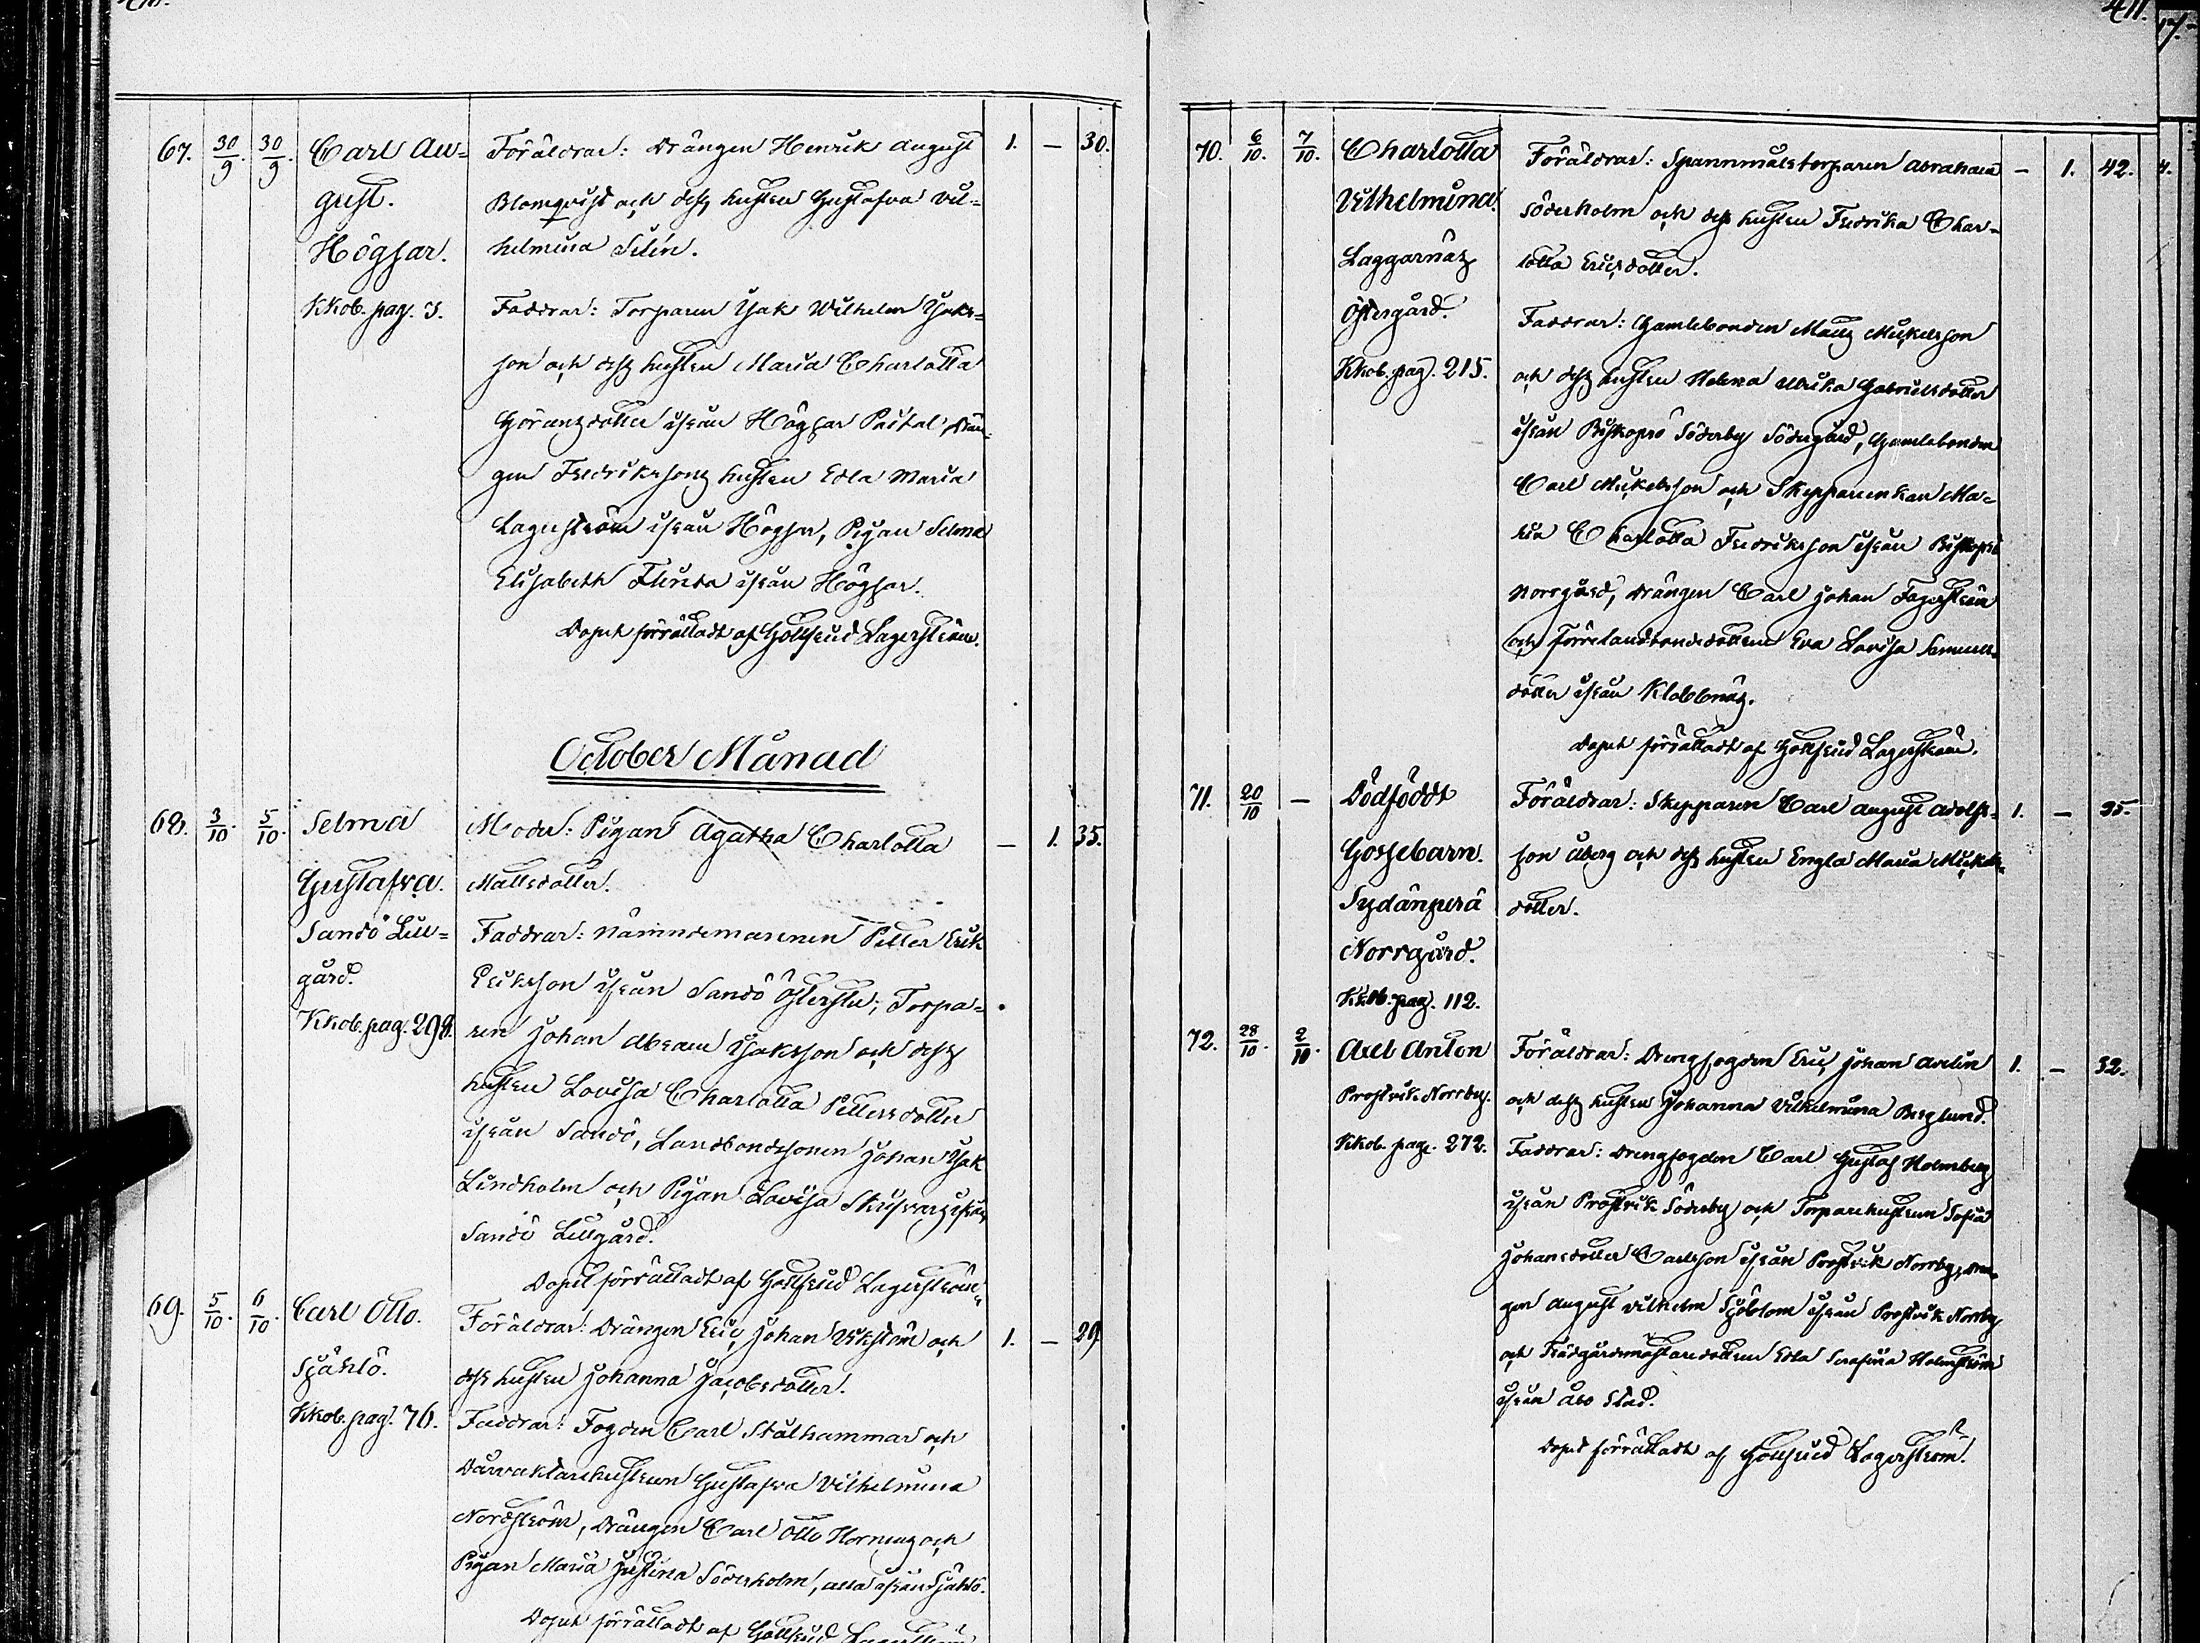 411.
67. 30/9. 30/9. Carl Au= Föräldrar: Drängen Henrik August 1. — 30.
gust. Blomqvist och dess hustru Gustafva Vil=
Högsar. helmina Selin.
Kkob. pag. 3. Faddrar: Torparen Isak Wilhelm Isaks=
son och dess hustru Maria Charlotta
Göransdotter ifrån Högsar Paital, Drän=
gen Fredrikssons hustru Edla Maria
Lagerström ifrån Högsar, Pigan Selma
Elisabeth Flinta ifrån Högsar.
Dopet förrättadt af Gottfrid Lagerström.
October Månad
68. 3/10. 5/10. Selma Moder: Pigan Agatha Charlotta — 1. 35.
Gustafva. Mattsdotter.
Sandö Lill= Faddrar: Nämndemannen Petter Erik
gård. Eriksson ifrån Sandö ; Torpa=
Kkob. pag. 298. ren Johan Abram Isaksson och dess
hustru Lovisa Charlotta Pettersdotter
ifrån Sandö, Landbondssonen Johan Isak
Lindholm och Pigan Lovisa ifrån
Sandö Lillgård.
Dopet förrättadt af Gottfrid Lagerström.
69. 5/10. 6/10. Carl Otto. Föräldrar: Drängen Eric Johan Vikström och 1. — 29
Själö. dess hustru Johanna Jacobsdotter.
Kkob. pag. 76. Faddrar: Fogden Carl Stålhammar och
Dårvaktarehustrun Gustafva Vilhelmina
Nordström, Drängen Carl Otto Hornung och
Pigan Maria Justina Söderholm, alla ifrån Själö.
Dopet förrättadt af Gottfrid Lagerström
70. 6/10. 7/10. Charlotta Föräldrar: Spannmålstorparen Abraham — 1. 42.
Vilhelmina. Söderholm och dess hustru Fredrika Char=
Laggarnäs lotta Ericsdotter.
Östergård. Faddrar: Gamlebonden Matts Mickelsson
Kkob. pag. 215. och dess hustru Helena Ulrika Gabrielsdotter
ifrån Biskopsö Söderby Södergård, Gamlebonden
Carl Mickelsson och Skepparenkan Ma=
ria Charlotta Fredriksson ifrån Biskopsö
Norrgård, Drängen Carl Johan Fagerström
och Eva Lovisa Samuels=
dotter ifrån Klobbnäs.
Dopet förrättadt af Gottfrid Lagerström.
71. 20/10 — Dödföddt Föräldrar: Skepparen Carl August Adolfs= 1. — 35.
Gossebarn. son Åberg och dess hustru Engla Maria Mickels=
Sydänperä dotter.
Norrgård.
Kkob. pag. 112.
72. 28/10. 2/10. Axel Anton Föräldrar: Drengfogden Eric Johan Avelin 1. — 32.
Prostvik Norrby. och dess hustru Johanna Vilhelmina Berglund.
Kkob. pag. 272. Faddrar: Drengfogden Carl Gustaf Holmberg
ifrån Prostvik Söderby och Torparehustrun Sofia
Johansdotter Carlsson ifrån Prostvik Norrby, Dren=
gen August Vilhelm Sjöblom ifrån Prostvik Norrby
och Trädgårdsmästaredottern Edla Serafina Holmström
ifrån Åbo Stad.
Dopet förrättadt af Gottfrid Lagerström.